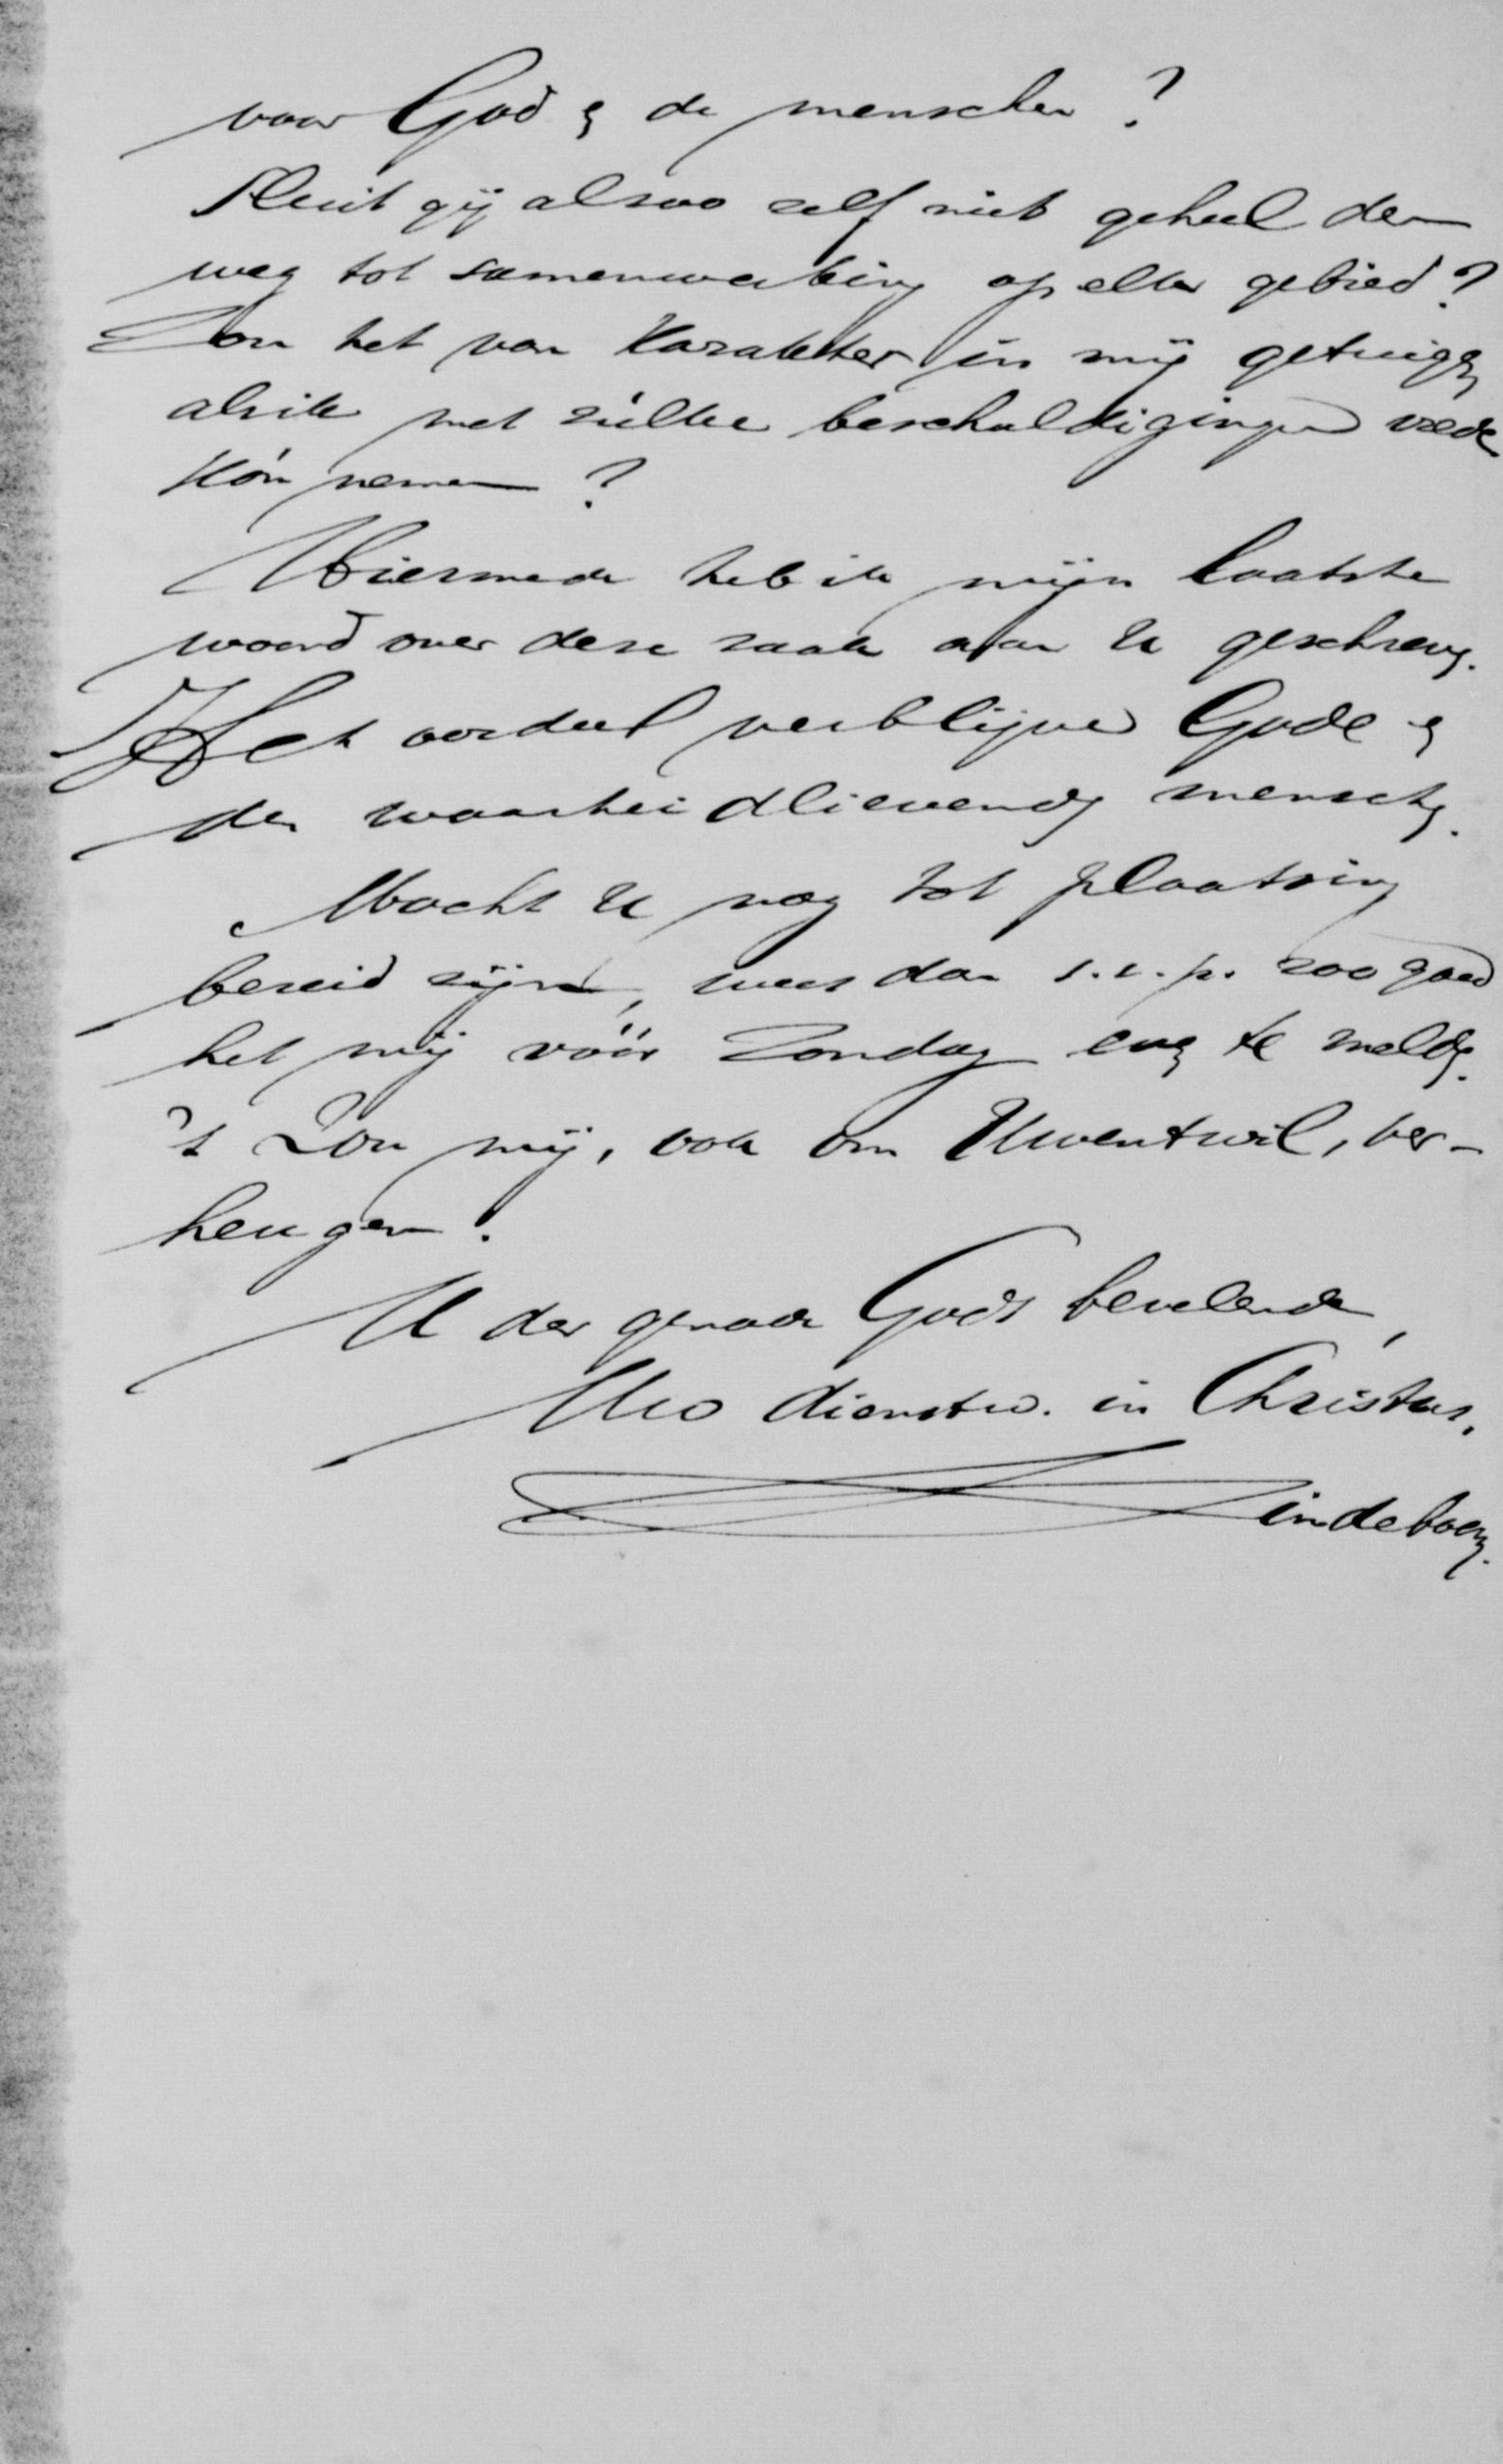 voor God & de menschen?
Sluit gij alzoo zelf niet geheel den
weg tot samenwerking op elk gebied?
Zou het van Karakter in mij getuigen
als ik met zúlke beschuldigingen vrede
kón nemen?
Hiermede heb ik mijn laatste
woord over deze zaak aan U geschreven.
Het oordeel verblijve Gode &
den waarheidlievenden menschen.
Mocht U nog tot plaatsing
bereid zijn, wees dan s.v.p. zoo goed
het mij vóór Zondag even te melden.
't Zou mij, ook om Uwentwil, ver-
heugen.
U der genade Gods bevelende,
Uw dienstw. in Christus,
Lindeboom.